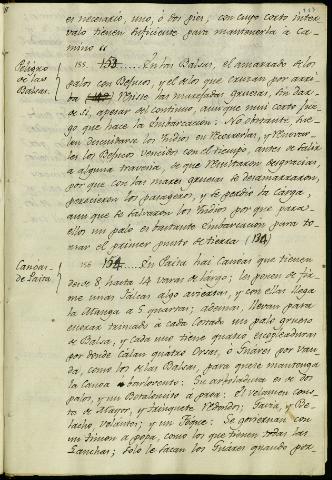 es necesario, uno, ó dos pies; con cuyo corto inter
valo tienen suficiente para mantenerla à ca-
mino
Peligro
de las
Balsas.
155. 153 En las Balsas, el amarrado de los
palos con Befucos, y el de los que cruzan por arri
ba resiste las marejadas gruesas, sin dar-
de sí, apesar del continuo, aunque mui corto jue-
go que hace la embarcacion: No obstante, sue-
len descuidarse los Indios en recorrerlas, y renovar-
les los Befucos vencidos con el tiempo, antes de salir
a alguna travesía, de que resultaron desgracias,
por que con las mares gruesas se desamarraron,
perecieron los pasageros, y se perdió la carga,
aun que se salvaron los Indios por que para
ellos un palo es bastante embarcacion para to-
mar el primer punto de tierra (134)
Canoas
de Paita
156 154 En Paita hai Canoas que tienen
desde 8 hasta 14 varas de largo; les ponen de fir
me unas falcas algo arqueadas, y con ellas llega
la Manga a 5 quartas; ademas, llevan para
encima trincado à cada costado un palo grueso
de Balsa, y cada uno tiene quatro escopleaduras
por donde calan quatro Orsas, ó Guares por van
da, como los de las Balsas, para que se mantenga
la Canoa barlovento: Su arboladura es de dos
palos, y un Botalonsito a proa: el velamen cons-
ta de Mayor, y trinquete redondos; Gavia, y Ve-
lacho, volantes; y un Foque: Se goviernan con
un timon a popa, como los que tienen todas las
Lanchas; solo le sacan los Guares quando por-